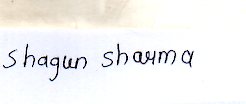 Shagun sharma